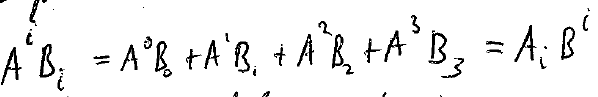 AⁱBᵢ = A⁰B₀ + A¹B₁ + A²B₂ + A³B₃ = AᵢBⁱ